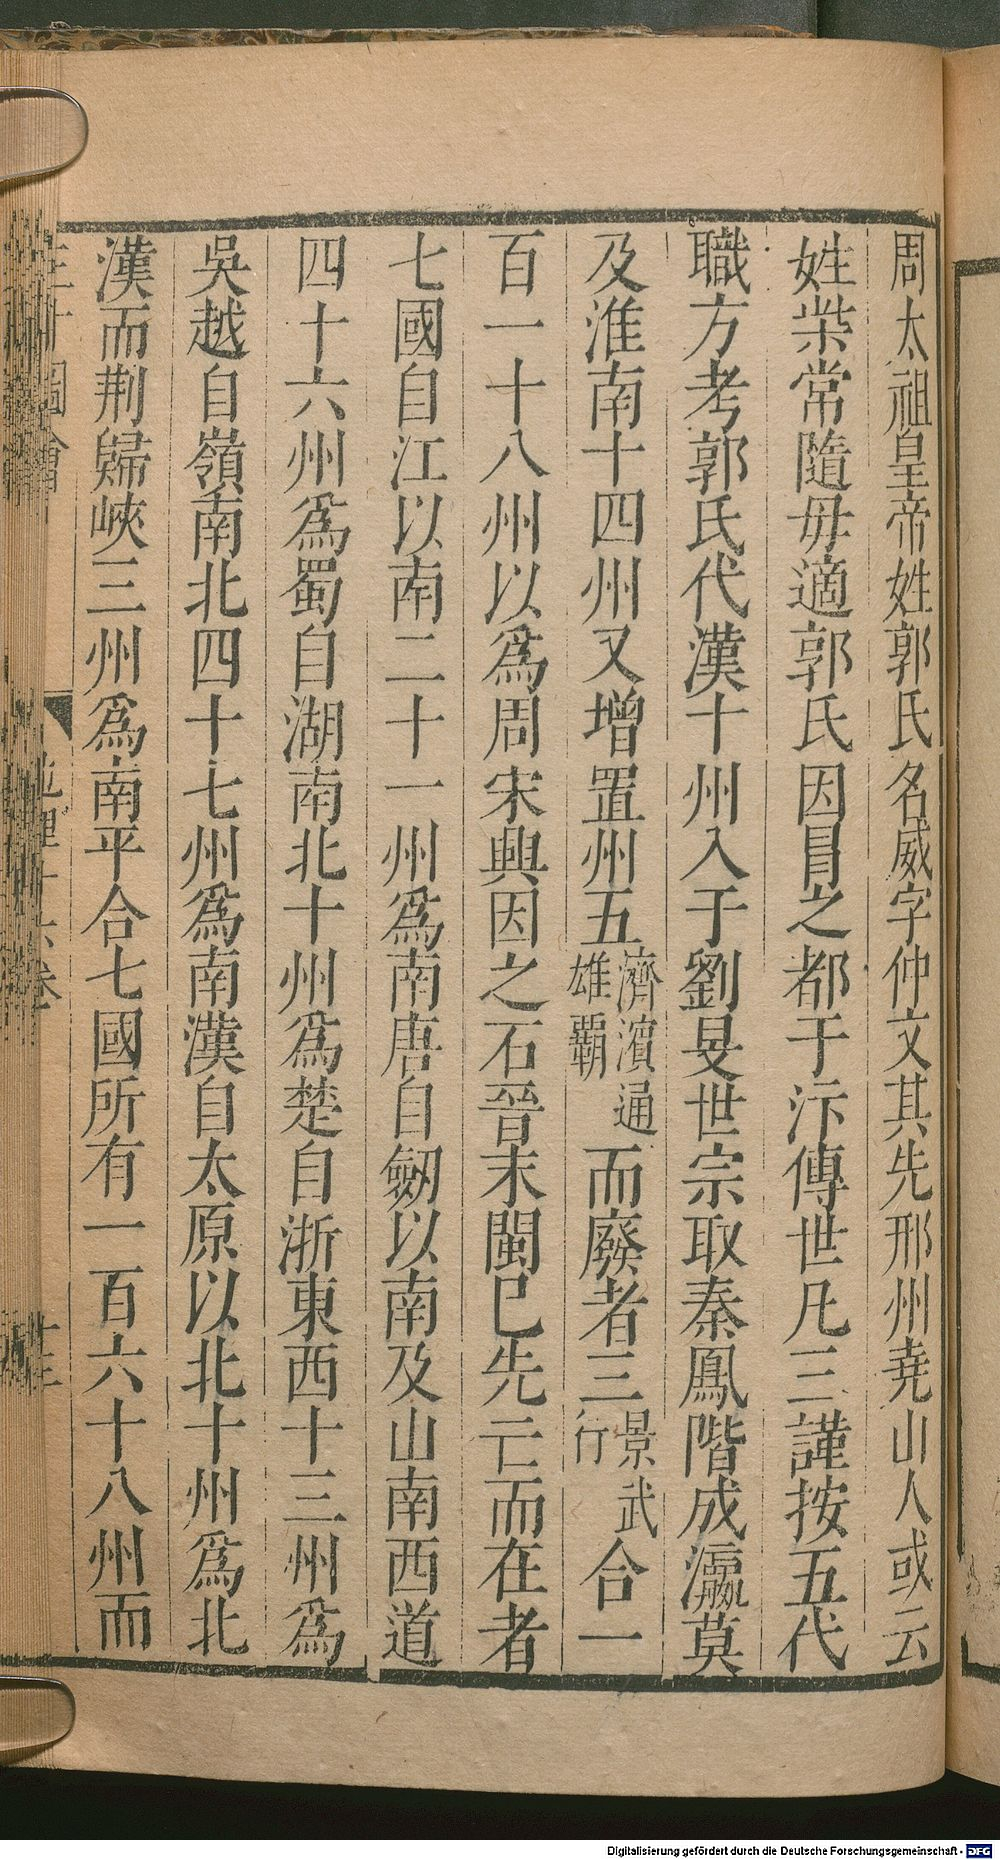 周太祖皇帝姓郭氏名威字仲文其先邢州堯山人或云
姓柴常隨毋適郭氏因冒之都于汴傳世凡三謹按五代
職方考郭氏代漢十州入于劉旻世宗取秦鳳階成瀛莫
及淮南十四州又增置州五濟濱通雄覇而廢者三景武行合一
百一十八州以爲周宋興因之石晉末閩已先亡而在者
七國自江以南二十一州爲南唐自劒以南及山南西道
四十六州爲蜀自湖南北十州爲楚自浙東西十三州爲
吳越自嶺南北四十七州爲南漢自太原以北十州爲北
漢而荆歸峽三州爲南平合七國所有一百六十八州而
三才圖會
地理十六卷
Digitalisierung gefördert durch die Deutsche Forschungsgemeinschaft - DFG